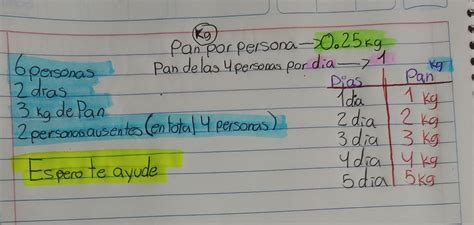 Kg
Pan por persona → 0.25 kg
Pan de las 4 personas por dia → 1
6 personas
2 dias
3 kg de Pan
2 personas ausentes (en total 4 personas)
Espero te ayude
Dias Pan kg
1 dia 1 kg
2 dia 2 kg
3 dia 3 kg
4 dia 4 kg
5 dia 5 kg